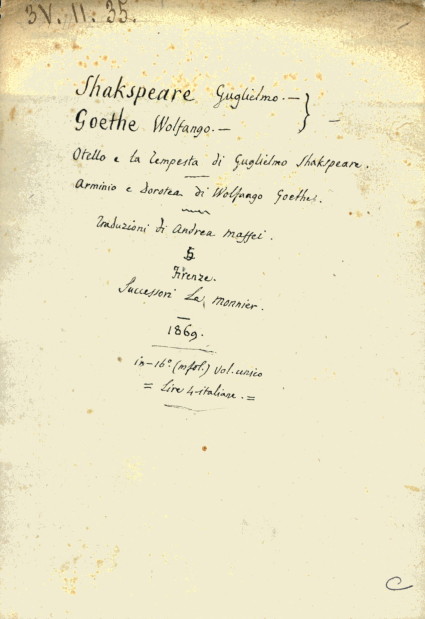 3V. 11: 35.
Shakspeare Guglielmo. —
Goethe Wolfango. — } —
Otello e la Tempesta di Guglielmo Shakspeare.
Arminio e Dorotea di Wolfango Goethe.
Traduzioni di Andrea Maffei.
§
Firenze.
Successori Le Monnier.
1869.
in-16º. () vol. unico
= Lire 4-italiane. =
C